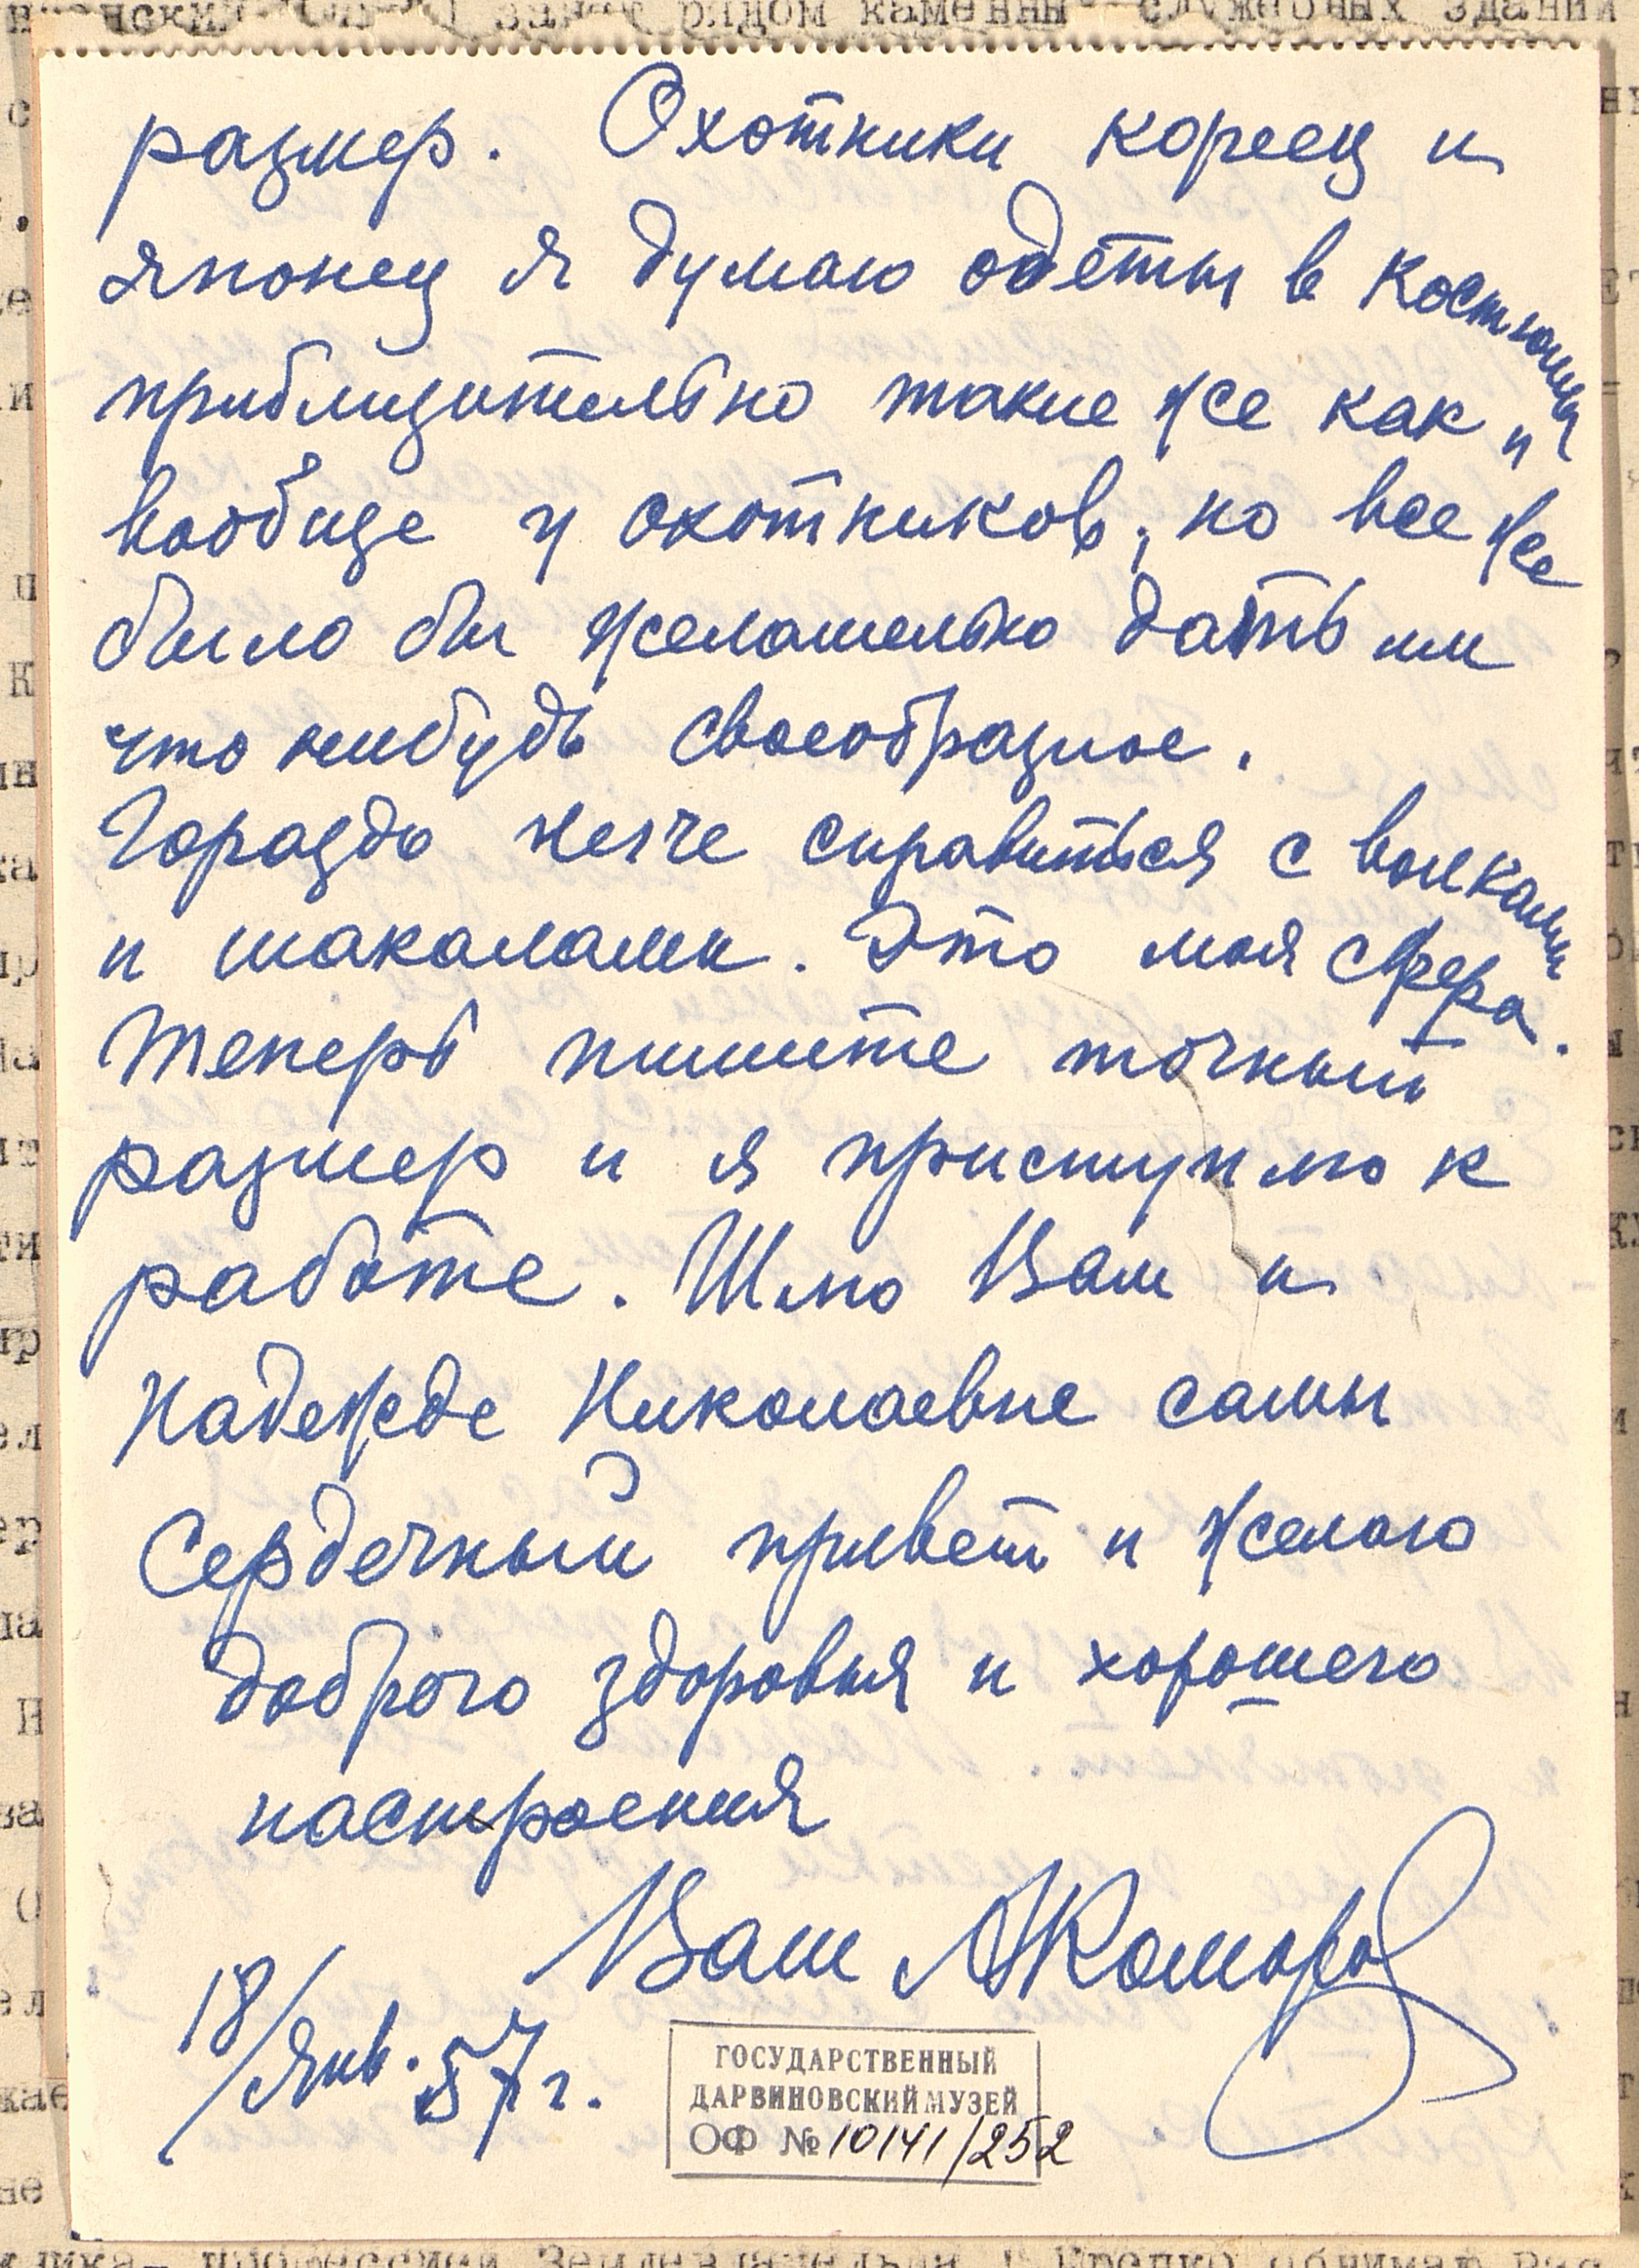 размер. Охотники кореец и
японец я думаю одеты в костюмы
приблизительно такие же как и
вообще у охотников, но все же
было бы желательно дать им
что нибудь своеобразное.
Гораздо легче справиться с волками
и шакалами. Это моя сфера.
Теперь пишите точный
размер и я приступлю к
работе. Шлю Вам и
Надежде Николаевне самый
сердечный привет и желаю
доброго здоровья и хорошего
настроения
Ваш АКомаров
18/янв. 57 г.
ГОСУДАРСТВЕННЫЙ
ДАРВИНОВСКИЙ МУЗЕЙ
ОФ № 10141/252